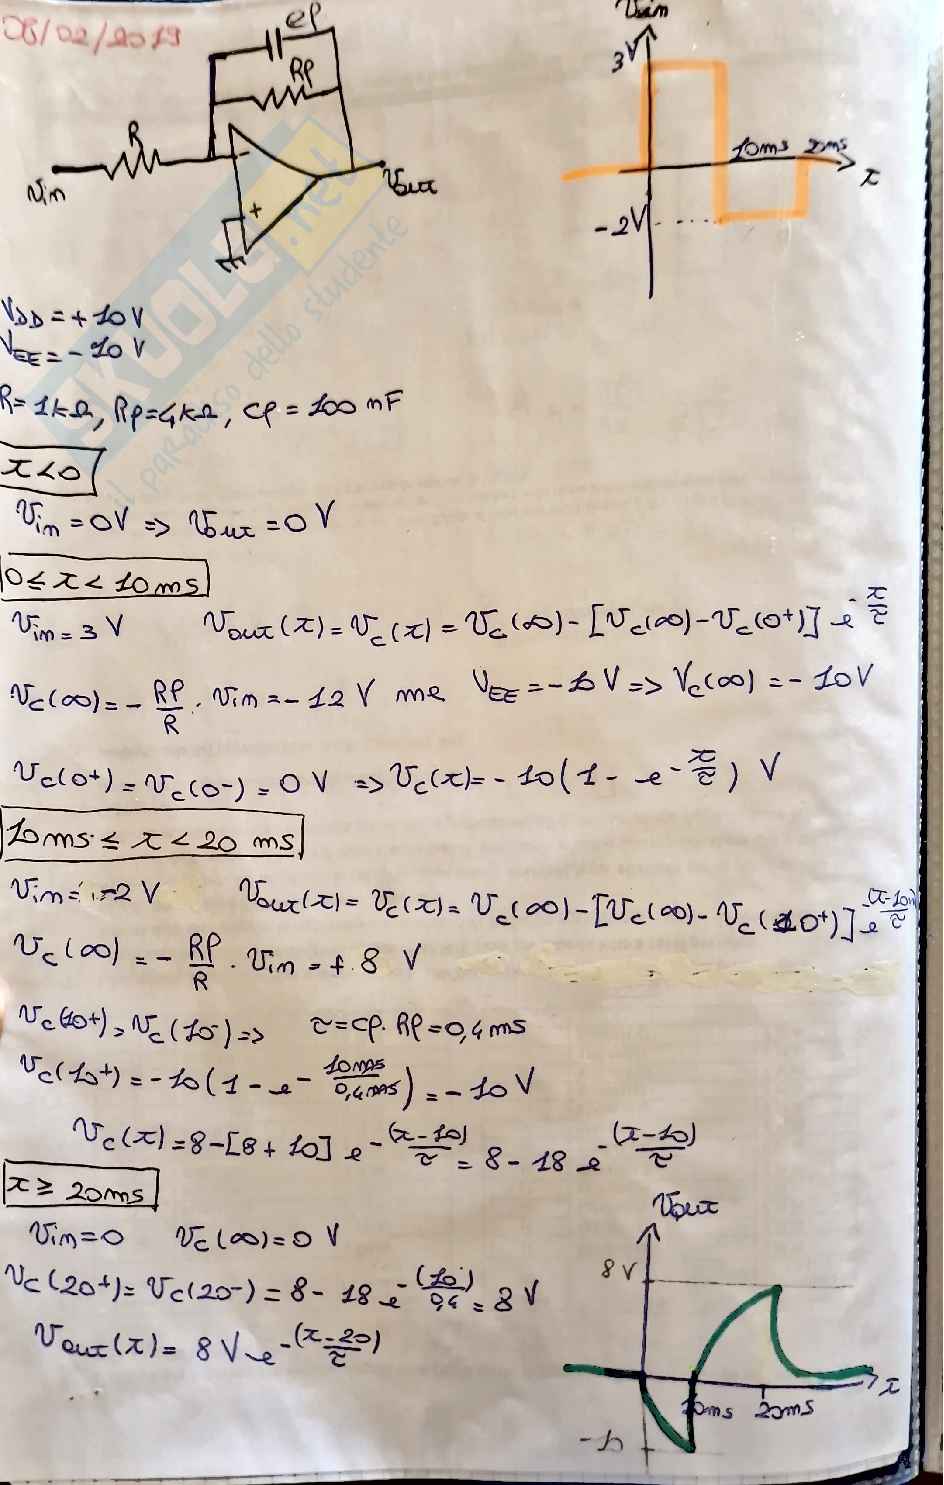 08/02/2019
Cp
Rp
R
Vin
-
+
Vout
Vin
3V
10ms 20ms
t
-2V
SKUOLA.net
il paradiso dello studente
VDD = +10V
VEE = -10V
R = 1kΩ, Rp = 4kΩ, Cp = 100 nF
t < 0
Vin = 0V => Vout = 0 V
0 ≤ t < 10 ms
Vin = 3 V Vout(t) = Vc(t) = Vc(∞) - [Vc(∞) - Vc(0+)] e^-t/τ
Vc(∞) = - Rp/R · Vin = -12 V ma VEE = -10 V => Vc(∞) = -10V
Vc(0+) = Vc(0-) = 0 V => Vc(t) = -10(1 - e^-t/τ) V
10 ms ≤ t < 20 ms
Vin = -2 V Vout(t) = Vc(t) = Vc(∞) - [Vc(∞) - Vc(10+)] e^-(t-10ms)/τ
Vc(∞) = - Rp/R · Vin = + 8 V
Vc(10+) = Vc(10-) => τ = Cp · Rp = 0,4 ms
Vc(10+) = -10(1 - e^-10ms/0,4ms) = -10 V
Vc(t) = 8 - [8 + 10] e^-(t-10)/τ = 8 - 18 e^-(t-10)/τ
t ≥ 20ms
Vin = 0 Vc(∞) = 0 V
Vc(20+) = Vc(20-) = 8 - 18 e^-(10)/0,4 = 8 V
Vout(t) = 8 V e^-(t-20)/τ
Vout
8 V
10ms 20ms
t
-10